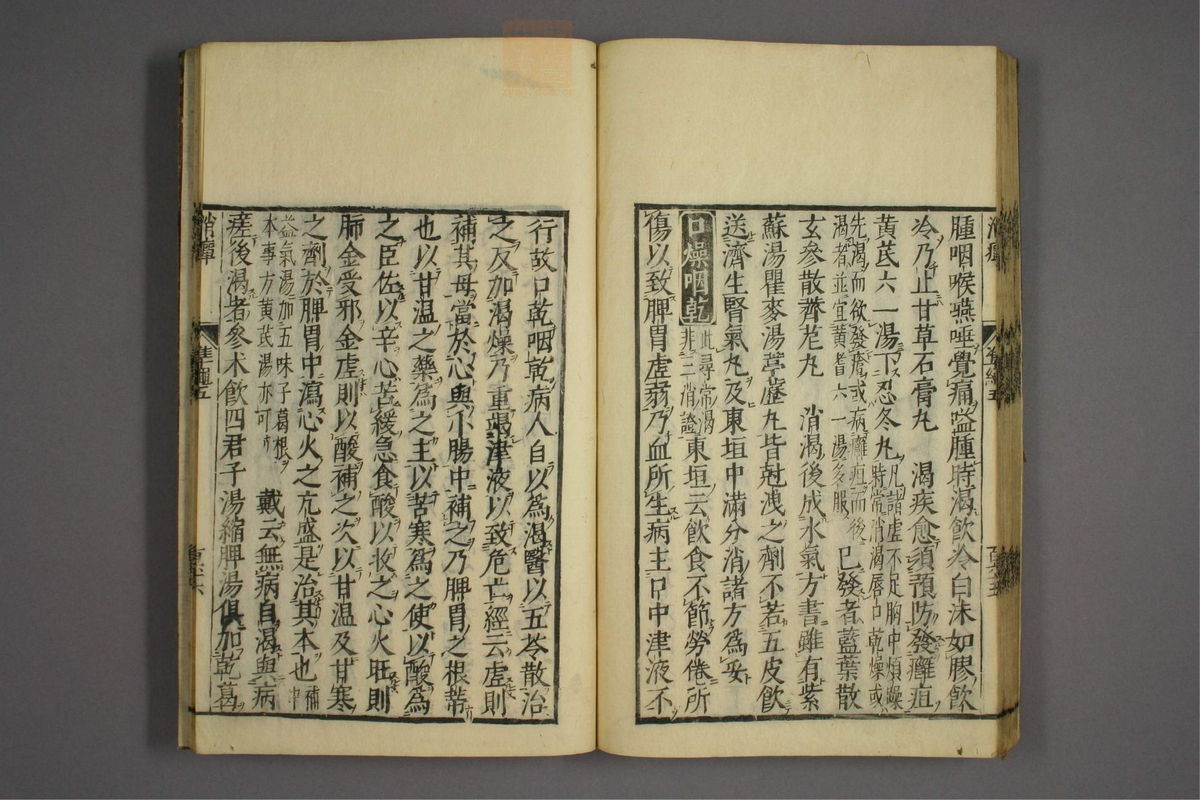 腫咽喉嚥唾覺痛嗌腫時渴飲冷白沫如膠飲
冷乃止甘草石膏丸　渴疾愈須預防發癰疽
黃芪六一湯下忍冬丸凡諸虛不足胸中煩躁
時常消渴唇口乾燥或
先渴而欲發瘡或病癰疽而後
渴者並宜黃耆六一湯多服已發者藍葉散
玄參散薺苨丸　消渴後成水氣方書雖有紫
蘇湯瞿麥湯葶藶丸皆尅洩之劑不若五皮飲
送濟生腎氣丸及東垣中滿分消諸方為妥
口燥咽乾此尋常渴
非三消證東垣云飲食不節勞倦所
傷以致脾胃虛弱乃血所生病主口中津液不
行故口乾咽乾病人自以為渴醫以五苓散治
之反加渴燥乃重竭津液以致危亡經云虛則
補其母當於心與小腸中補之乃脾胃之根蔕
也以甘溫之藥為之主以苦寒為之使以酸為
之臣佐以辛心苦緩急食酸以收之心火旺則
肺金受邪金虛則以酸補之次以甘溫及甘寒
之劑於脾胃中瀉心火之亢盛是治其本也補中
益氣湯加五味子葛根
本事方黃芪湯亦可　戴云無病自渴與病
瘥後渴者參朮飲四君子湯縮脾湯俱加乾葛